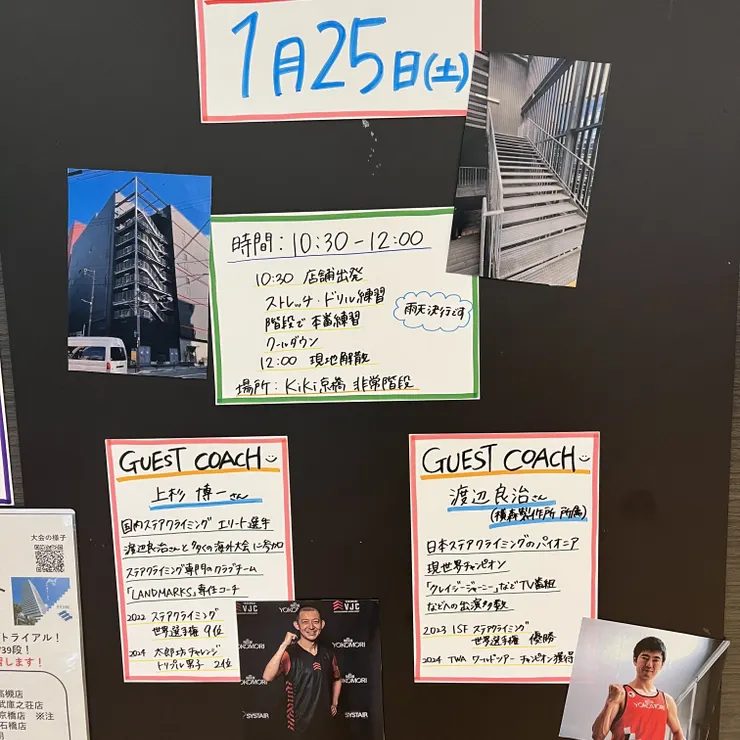 1月25日(土)
時間：10:30-12:00
10:30 店舗出発
ストレッチ・ドリル練習
階段で本番練習
クールダウン
12:00 現地解散
雨天決行です
場所：Kiki京橋 非常階段
GUEST COACH
上杉 博一さん
国内ステアクライミング エリート選手
渡辺良治さんと多くの海外大会に参加
ステアクライミング専門のクラブチーム
「LANDMARKS」専任コーチ
2022 ステアクライミング
世界選手権 9位
2024 太郎坊チャレンジ
トリプル男子 2位
GUEST COACH
渡辺良治さん
(横森製作所 所属)
日本ステアクライミングのパイオニア
現世界チャンピオン
「クレイジージャーニー」などTV番組
などへの出演多数
2023 ISF ステアクライミング
世界選手権 優勝
2024 TWA ワールドツアー チャンピオン獲得
大会の様子
トライアル！
739段！
します！
高槻店
武庫之荘店
京橋店 ※注
石橋店
VJC
VJC
YOKOMORI
YOKOMORI
YOKOMORI
SYSTAIR
SYSTAIR
YOKOMORI